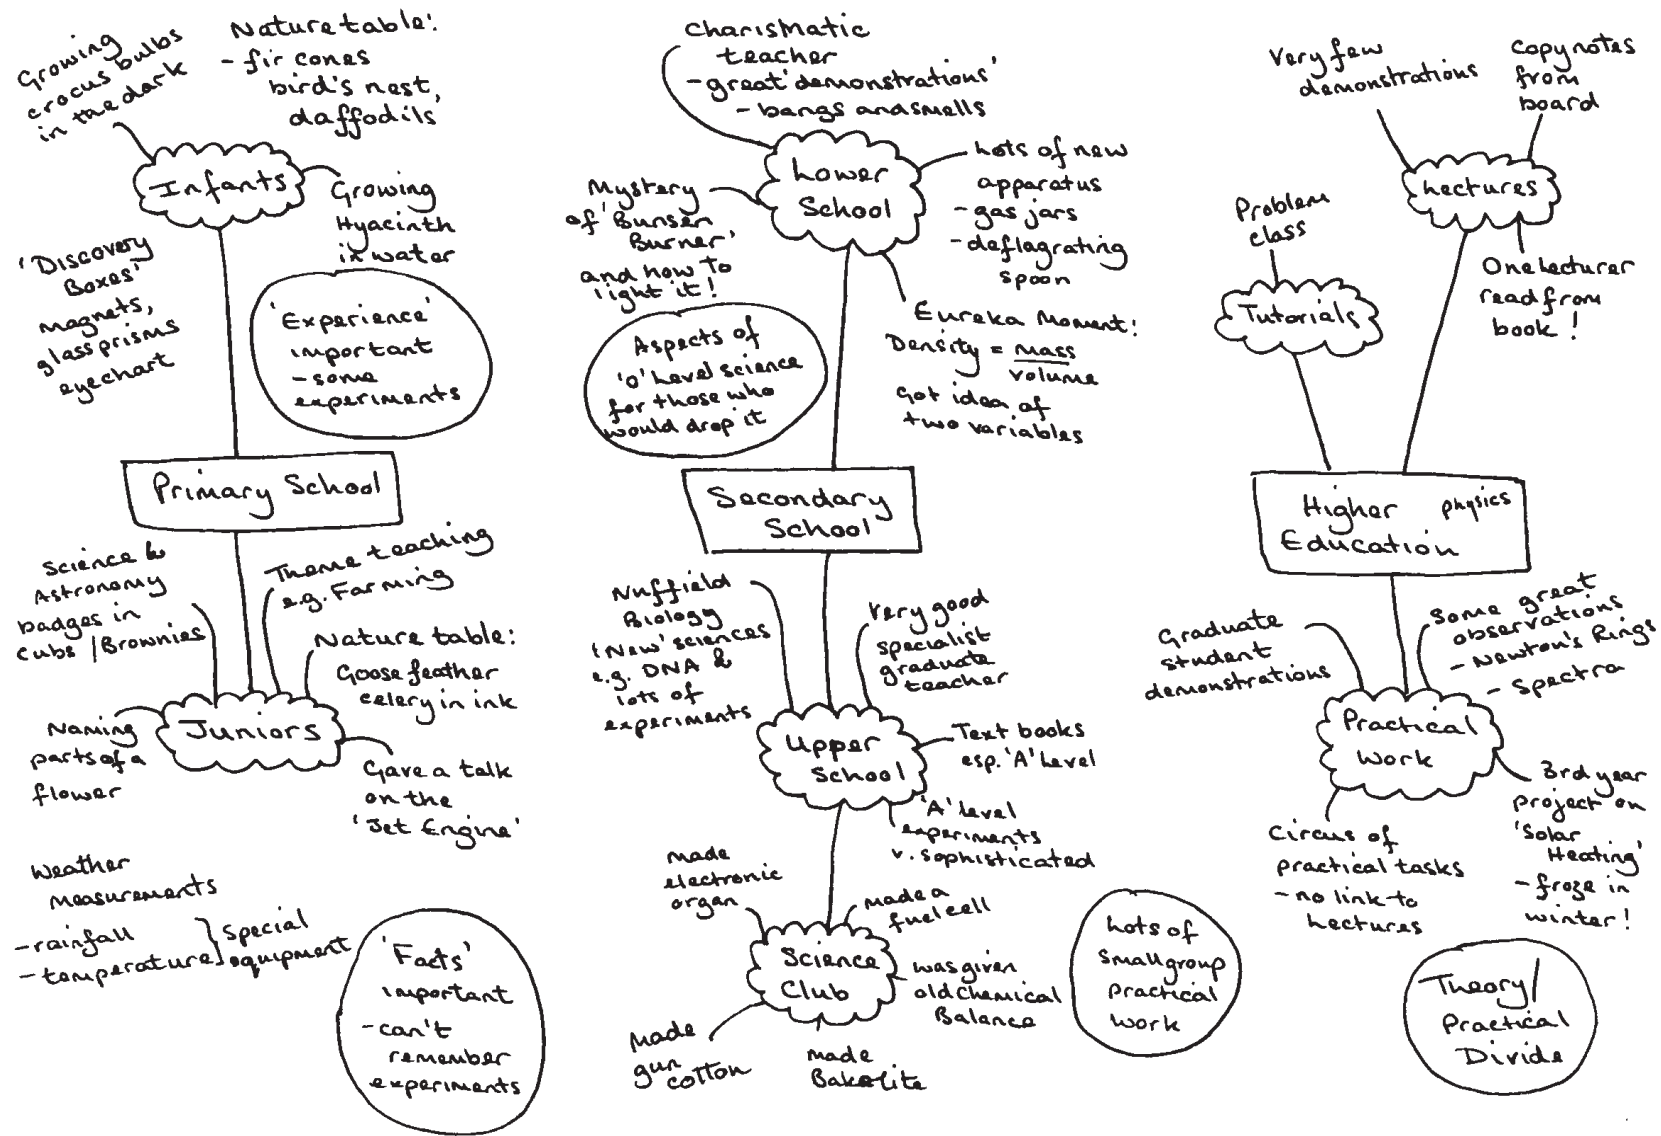 Growing
crocus bulbs
in the dark
Nature table:
- fir cones
bird's nest,
daffodils
Infants
Growing
Hyacinth
in water
'Discovery
Boxes'
magnets,
glass prisms
eyechart
'Experience'
important
- some
experiments
Primary School
Science &
Astronomy
badges in
cubs / Brownies
Theme teaching
e.g. Farming
Nature table:
Goose feather
celery in ink
Juniors
Naming
parts of a
flower
Gave a talk
on the
'Jet Engine'
Weather
measurements
- rainfall
- temperature
special
equipment
'Facts'
important
- can't
remember
experiments
Charismatic
teacher
- great 'demonstrations'
- bangs and smells
Lower
School
Mystery
of 'Bunsen
Burner'
and how to
light it!
Lots of new
apparatus
- gas jars
- deflagrating
spoon
Eureka Moment:
Density = mass
volume
Got idea of
two variables
Aspects of
'O' Level science
for those who
would drop it
Secondary
School
Nuffield
Biology
'New' sciences
e.g. DNA &
lots of
experiments
Very good
specialist
graduate
teacher
Upper
School
Text books
esp. 'A' Level
'A' level
experiments
v. sophisticated
made
electronic
organ
made a
fuel cell
Science
Club
was given
old chemical
Balance
Made
gun
cotton
made
Bakelite
Lots of
small group
practical
work
Very few
demonstrations
Copy notes
from
board
Lectures
Problem
class
Tutorials
One lecturer
read from
book!
Higher physics
Education
Graduate
student
demonstrations
Some great
observations
- Newton's Rings
- Spectra
Practical
Work
Circus of
practical tasks
- no link to
Lectures
3rd year
project on
'Solar
Heating'
- froze in
winter!
Theory/
Practical
Divide